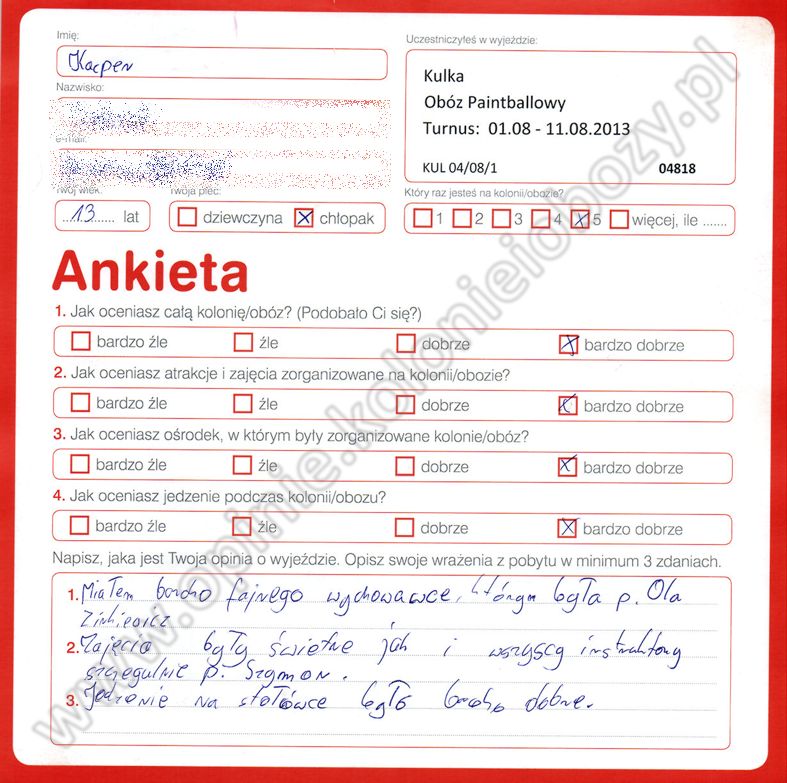 Imię:
Kacper
Nazwisko:
e-mail:
Twój wiek:
13 lat
Twoja płeć:
dziewczyna chłopak
Uczestniczyłeś w wyjeździe:
Kulka
Obóz Paintballowy
Turnus: 01.08 - 11.08.2013
KUL 04/08/1 04818
Który raz jesteś na kolonii/obozie?
1 2 3 4 5 więcej, ile .......
Ankieta
1. Jak oceniasz całą kolonię/obóz? (Podobało Ci się?)
bardzo źle źle dobrze bardzo dobrze
2. Jak oceniasz atrakcje i zajęcia zorganizowane na kolonii/obozie?
bardzo źle źle dobrze bardzo dobrze
3. Jak oceniasz ośrodek, w którym były zorganizowane kolonie/obóz?
bardzo źle źle dobrze bardzo dobrze
4. Jak oceniasz jedzenie podczas kolonii/obozu?
bardzo źle źle dobrze bardzo dobrze
Napisz, jaka jest Twoja opinia o wyjeździe. Opisz swoje wrażenia z pobytu w minimum 3 zdaniach.
1. Miałem bardzo fajnego wychowawce, którym była p. Ola
2. Zajęcia były świetne jak i wszyscy instruktorzy
szczegulnie p. Szymon.
3. Jedzenie na stołówce było bardzo dobre.
www.opinie.kolonieiobozy.pl